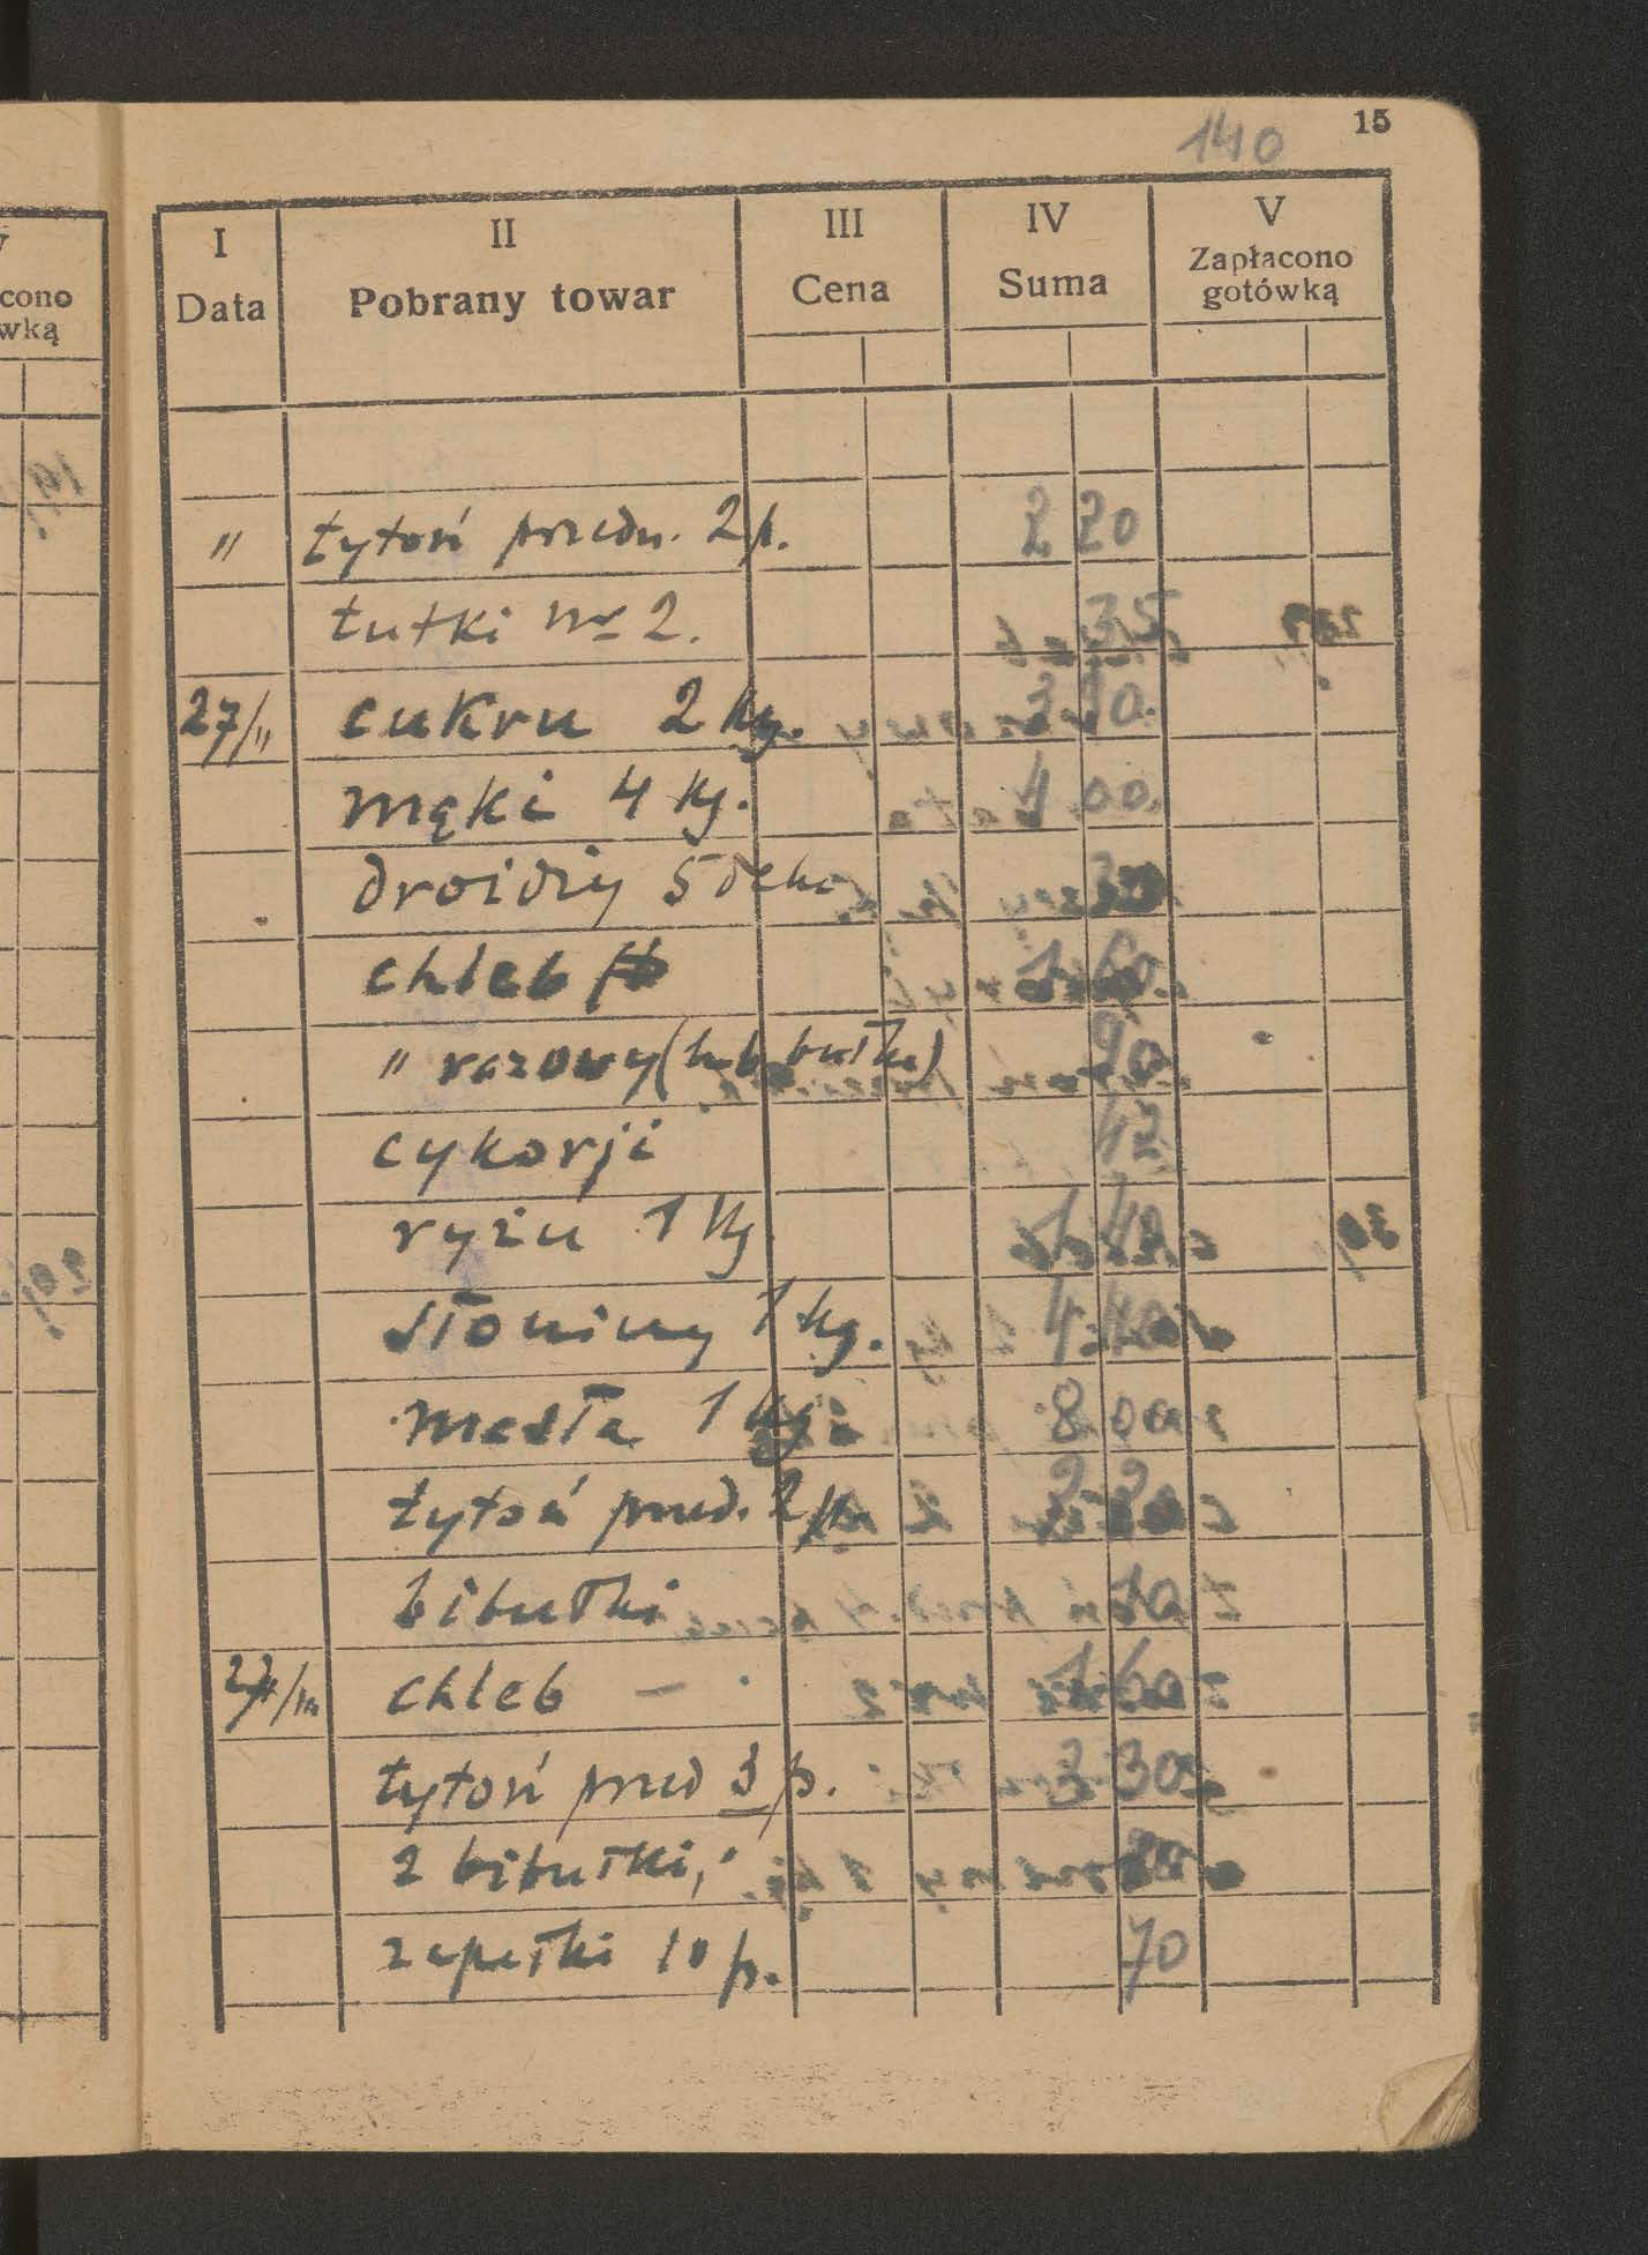 140 15
I II III IV V
Data Pobrany towar Cena Suma Zapłacono gotówką
cono
wką
" tytoń przedn. 2 p. 2 20
tutki nr 2. 35
27/II cukru 2 kg. 3 0.
mąki 4 kg. 4 00.
drożdży 5 deka 30
chleb 1 60.
" razowy (lub bułka) 90
cykorji 42
ryżu 1 kg 1 40
słoniny 1 kg. 4 40
masła 1 kg 8 00
tytoń przed. 2 p. 2 20
bibułki 10
27/III chleb – 1 60
tytoń przed 3 p. 3 30
2 bibułki, 20
zapałki 10 p. 70